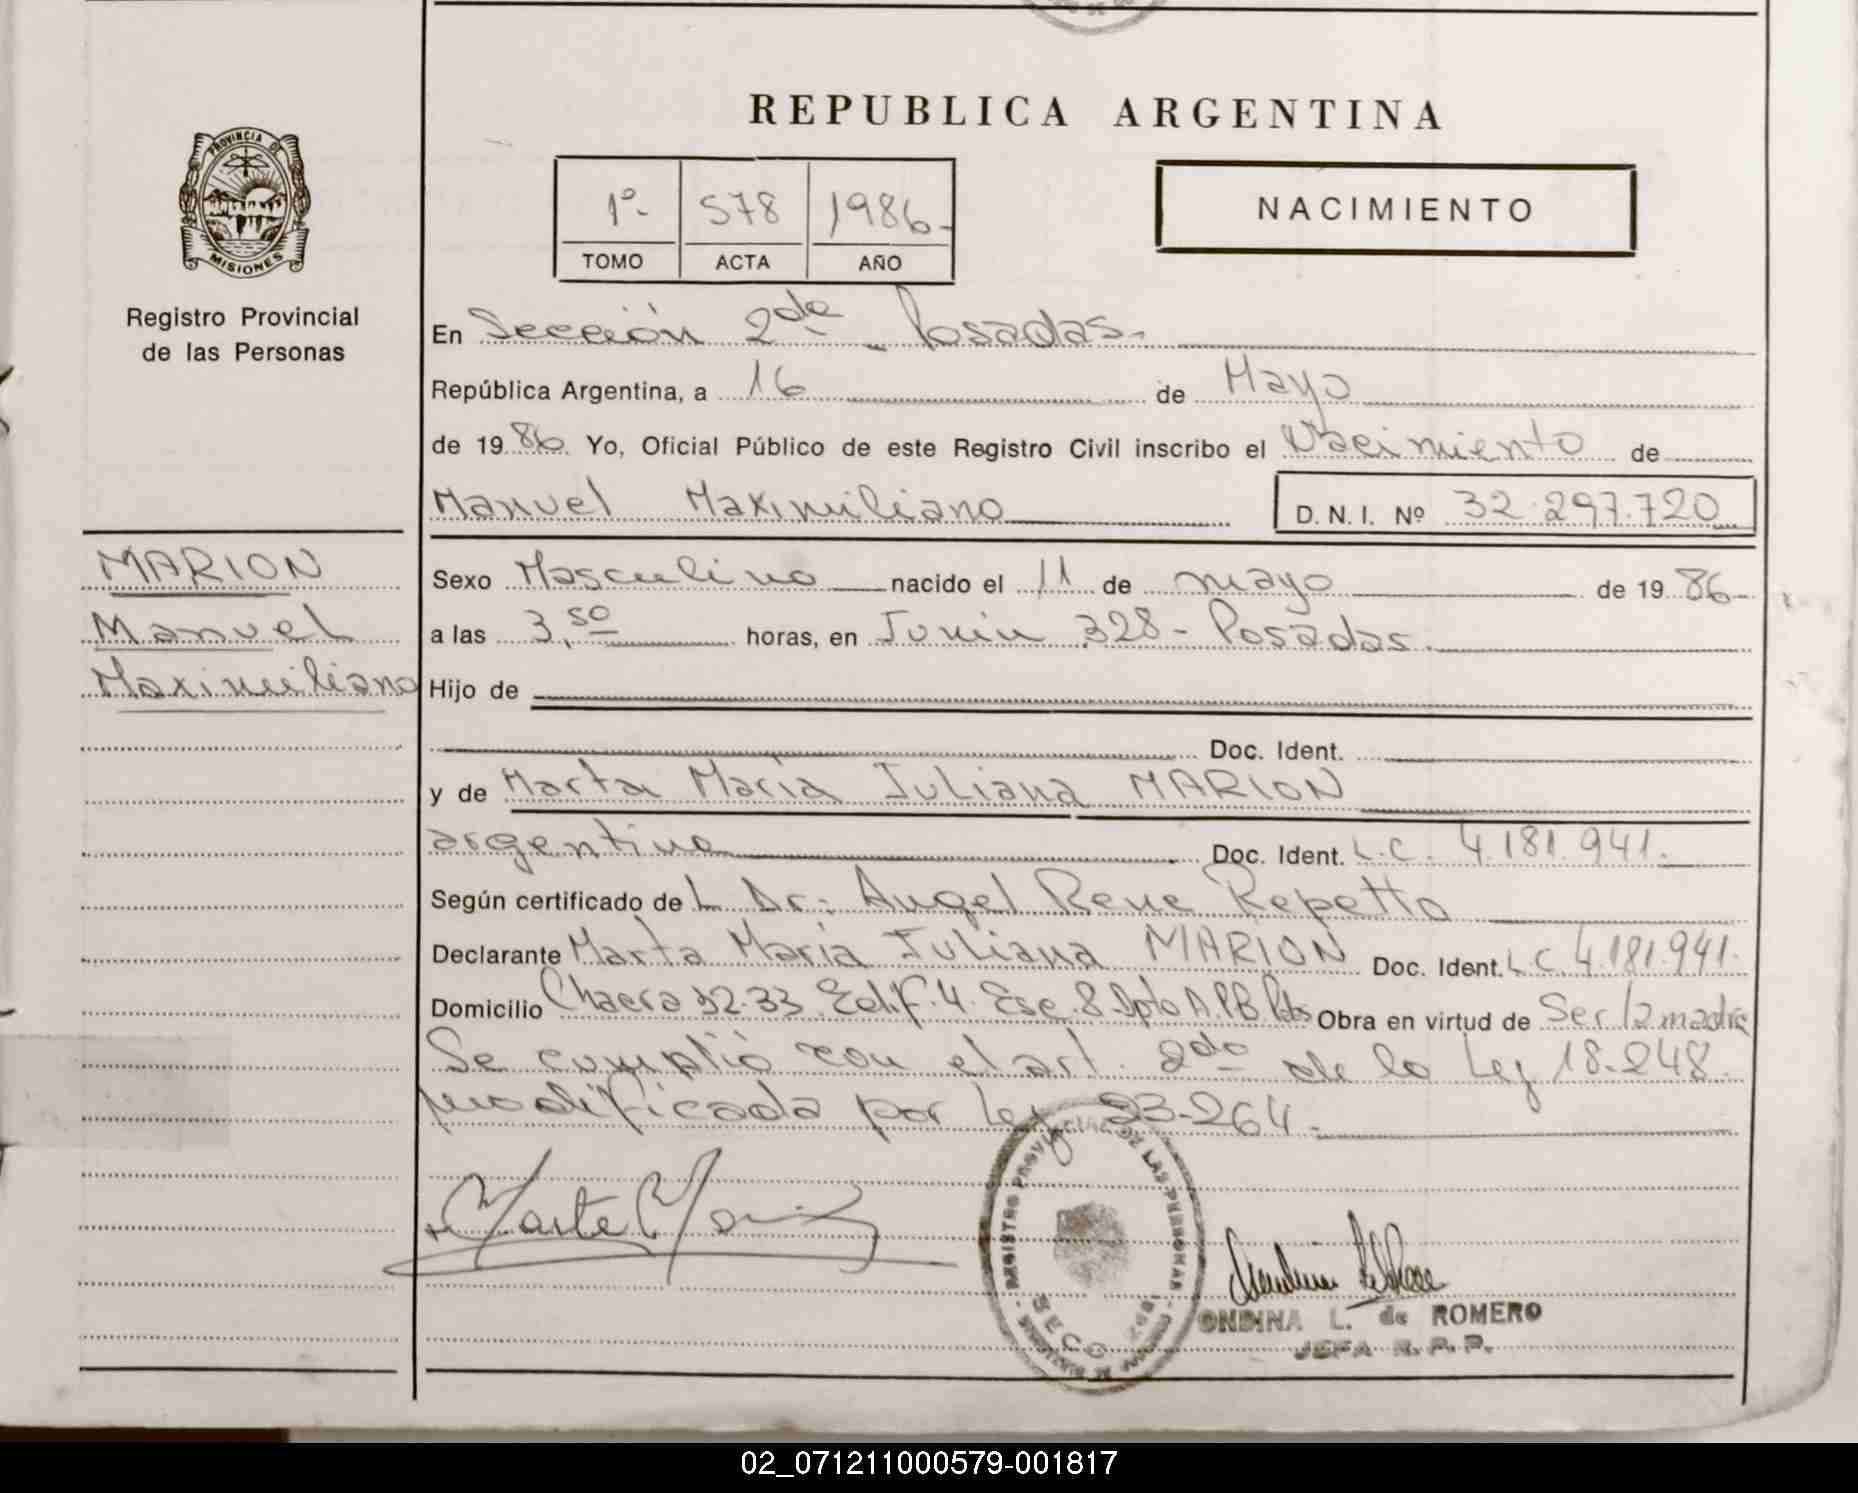 REPUBLICA ARGENTINA
PROVINCIA DE
MISIONES
Registro Provincial
de las Personas
1º- 578 1986-
TOMO ACTA AÑO
NACIMIENTO
En Sección 2da - Posadas.-
República Argentina, a 16 de Mayo
de 1986. Yo, Oficial Público de este Registro Civil inscribo el Nacimiento de
Manuel Maximiliano D.N.I. Nº 32.297.720
MARION
Manuel
Maximiliano
Sexo Masculino nacido el 11 de mayo de 1986-
a las 3,50 horas, en Junin 328- Posadas.
Hijo de
Doc. Ident.
y de Marta María Juliana MARION
argentina Doc. Ident. L.C. 4.181.941.
Según certificado de L Dr.: Angel Rene Repetto
Declarante Marta María Juliana MARION Doc. Ident. L.C. 4.181.941.
Domicilio Chacra 32-33 Edif. 4. Esc. 8 Dpto A. PB Pdas Obra en virtud de Ser la madre
Se cumplió con el art. 2do de la Ley 18.248
modificada por Ley 23-264.-
REGISTRO PROVINCIAL DE LAS PERSONAS
ONDINA L. de ROMERO
JEFA R. P. P.
02_071211000579-001817